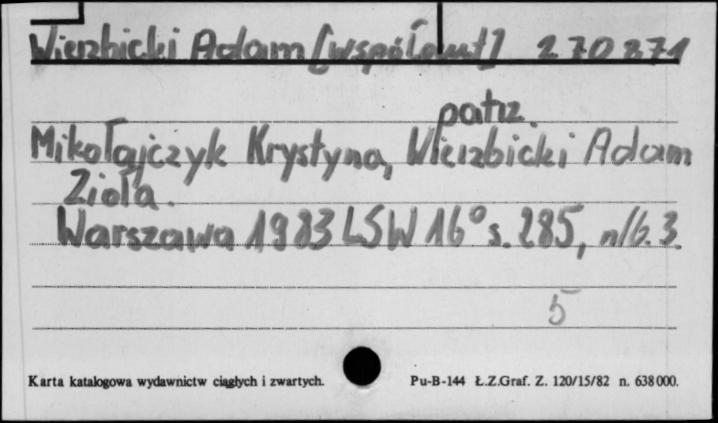 Wierzbicki Adam [współaut] 270871
patrz.
Mikołajczyk Krystyna, Wierzbicki Adam
Zioła.
Warszawa 1983 LSW 16° s. 285, nlb. 3.
5
Karta katalogowa wydawnictw ciągłych i zwartych. Pu-B-144 Ł.Z.Graf. Z. 120/15/82 n. 638000.